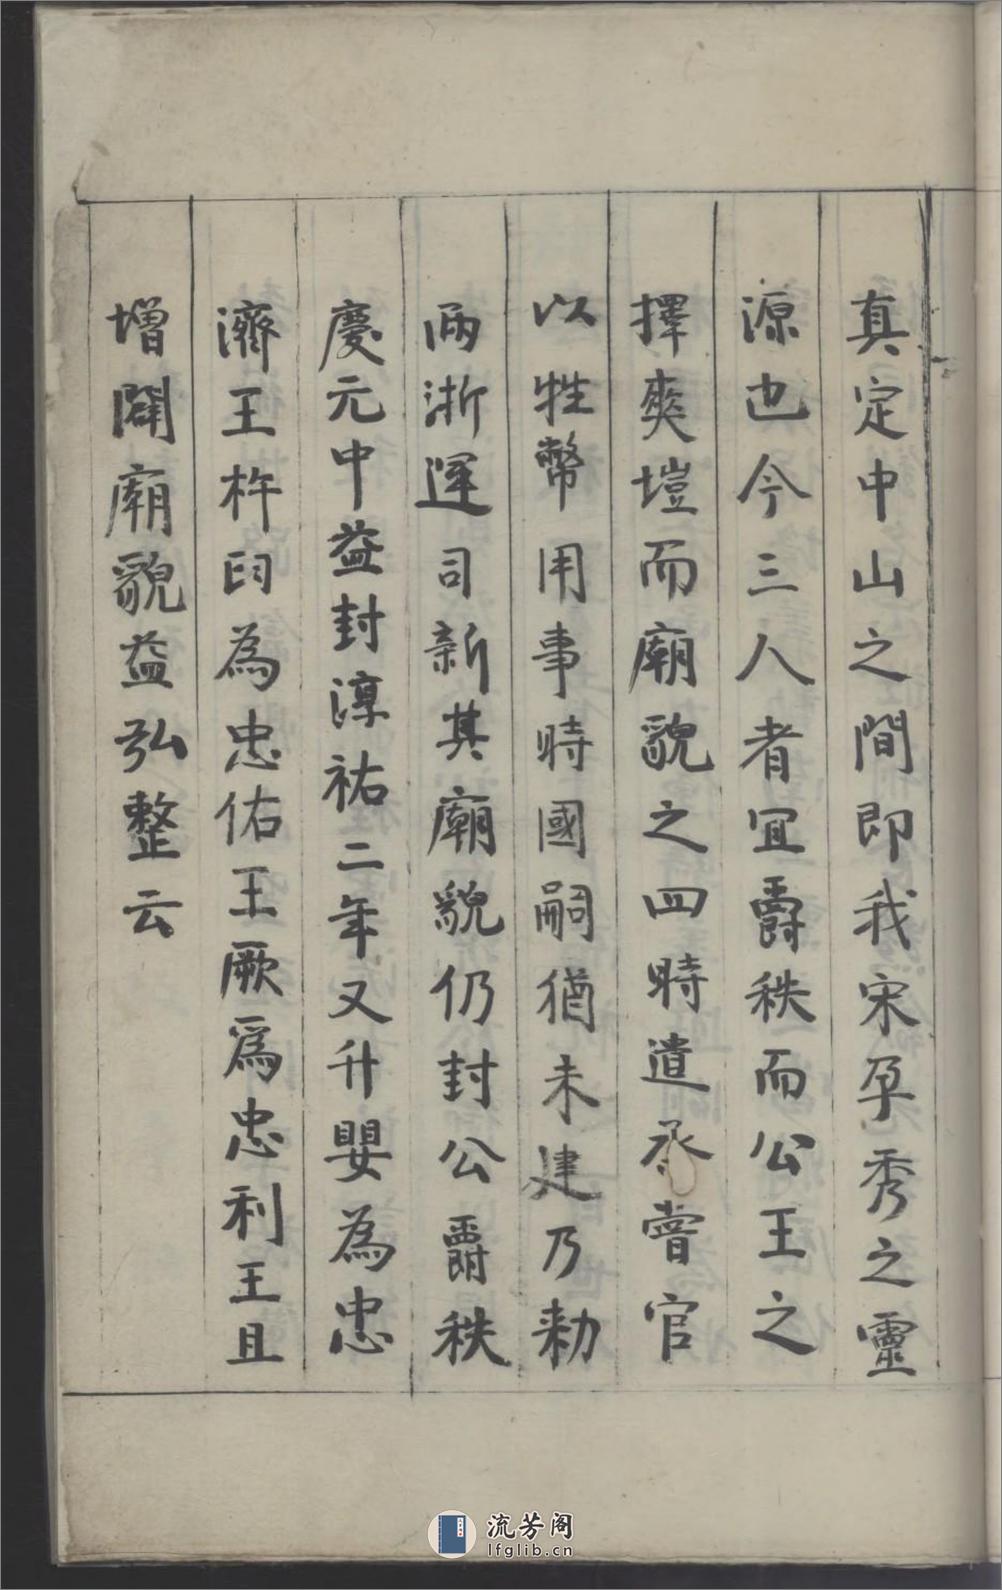 真定中山之間即我宋孕秀之靈
源也今三人者宜爵秩而公王之
擇爽塏而廟貌之四時遣丞嘗官
以牲幣用事時國嗣猶未建乃勑
兩浙運司新其廟貌仍封公爵秩
慶元中益封淳祐二年又升嬰為忠
濟王杵臼為忠佑王厥爲忠利王且
增闢廟貌益弘整云
流芳阁
lfglib.cn